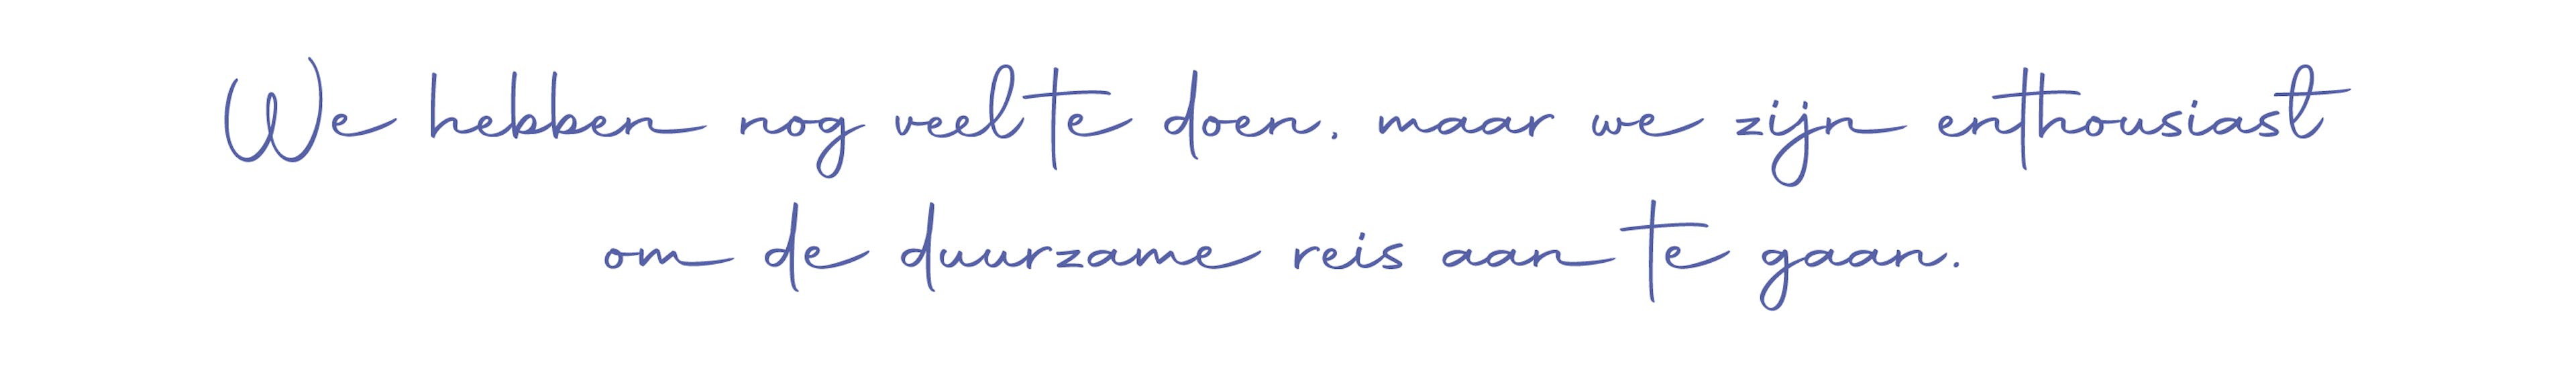 We hebben nog veel te doen, maar we zijn enthousiast
om de duurzame reis aan te gaan.